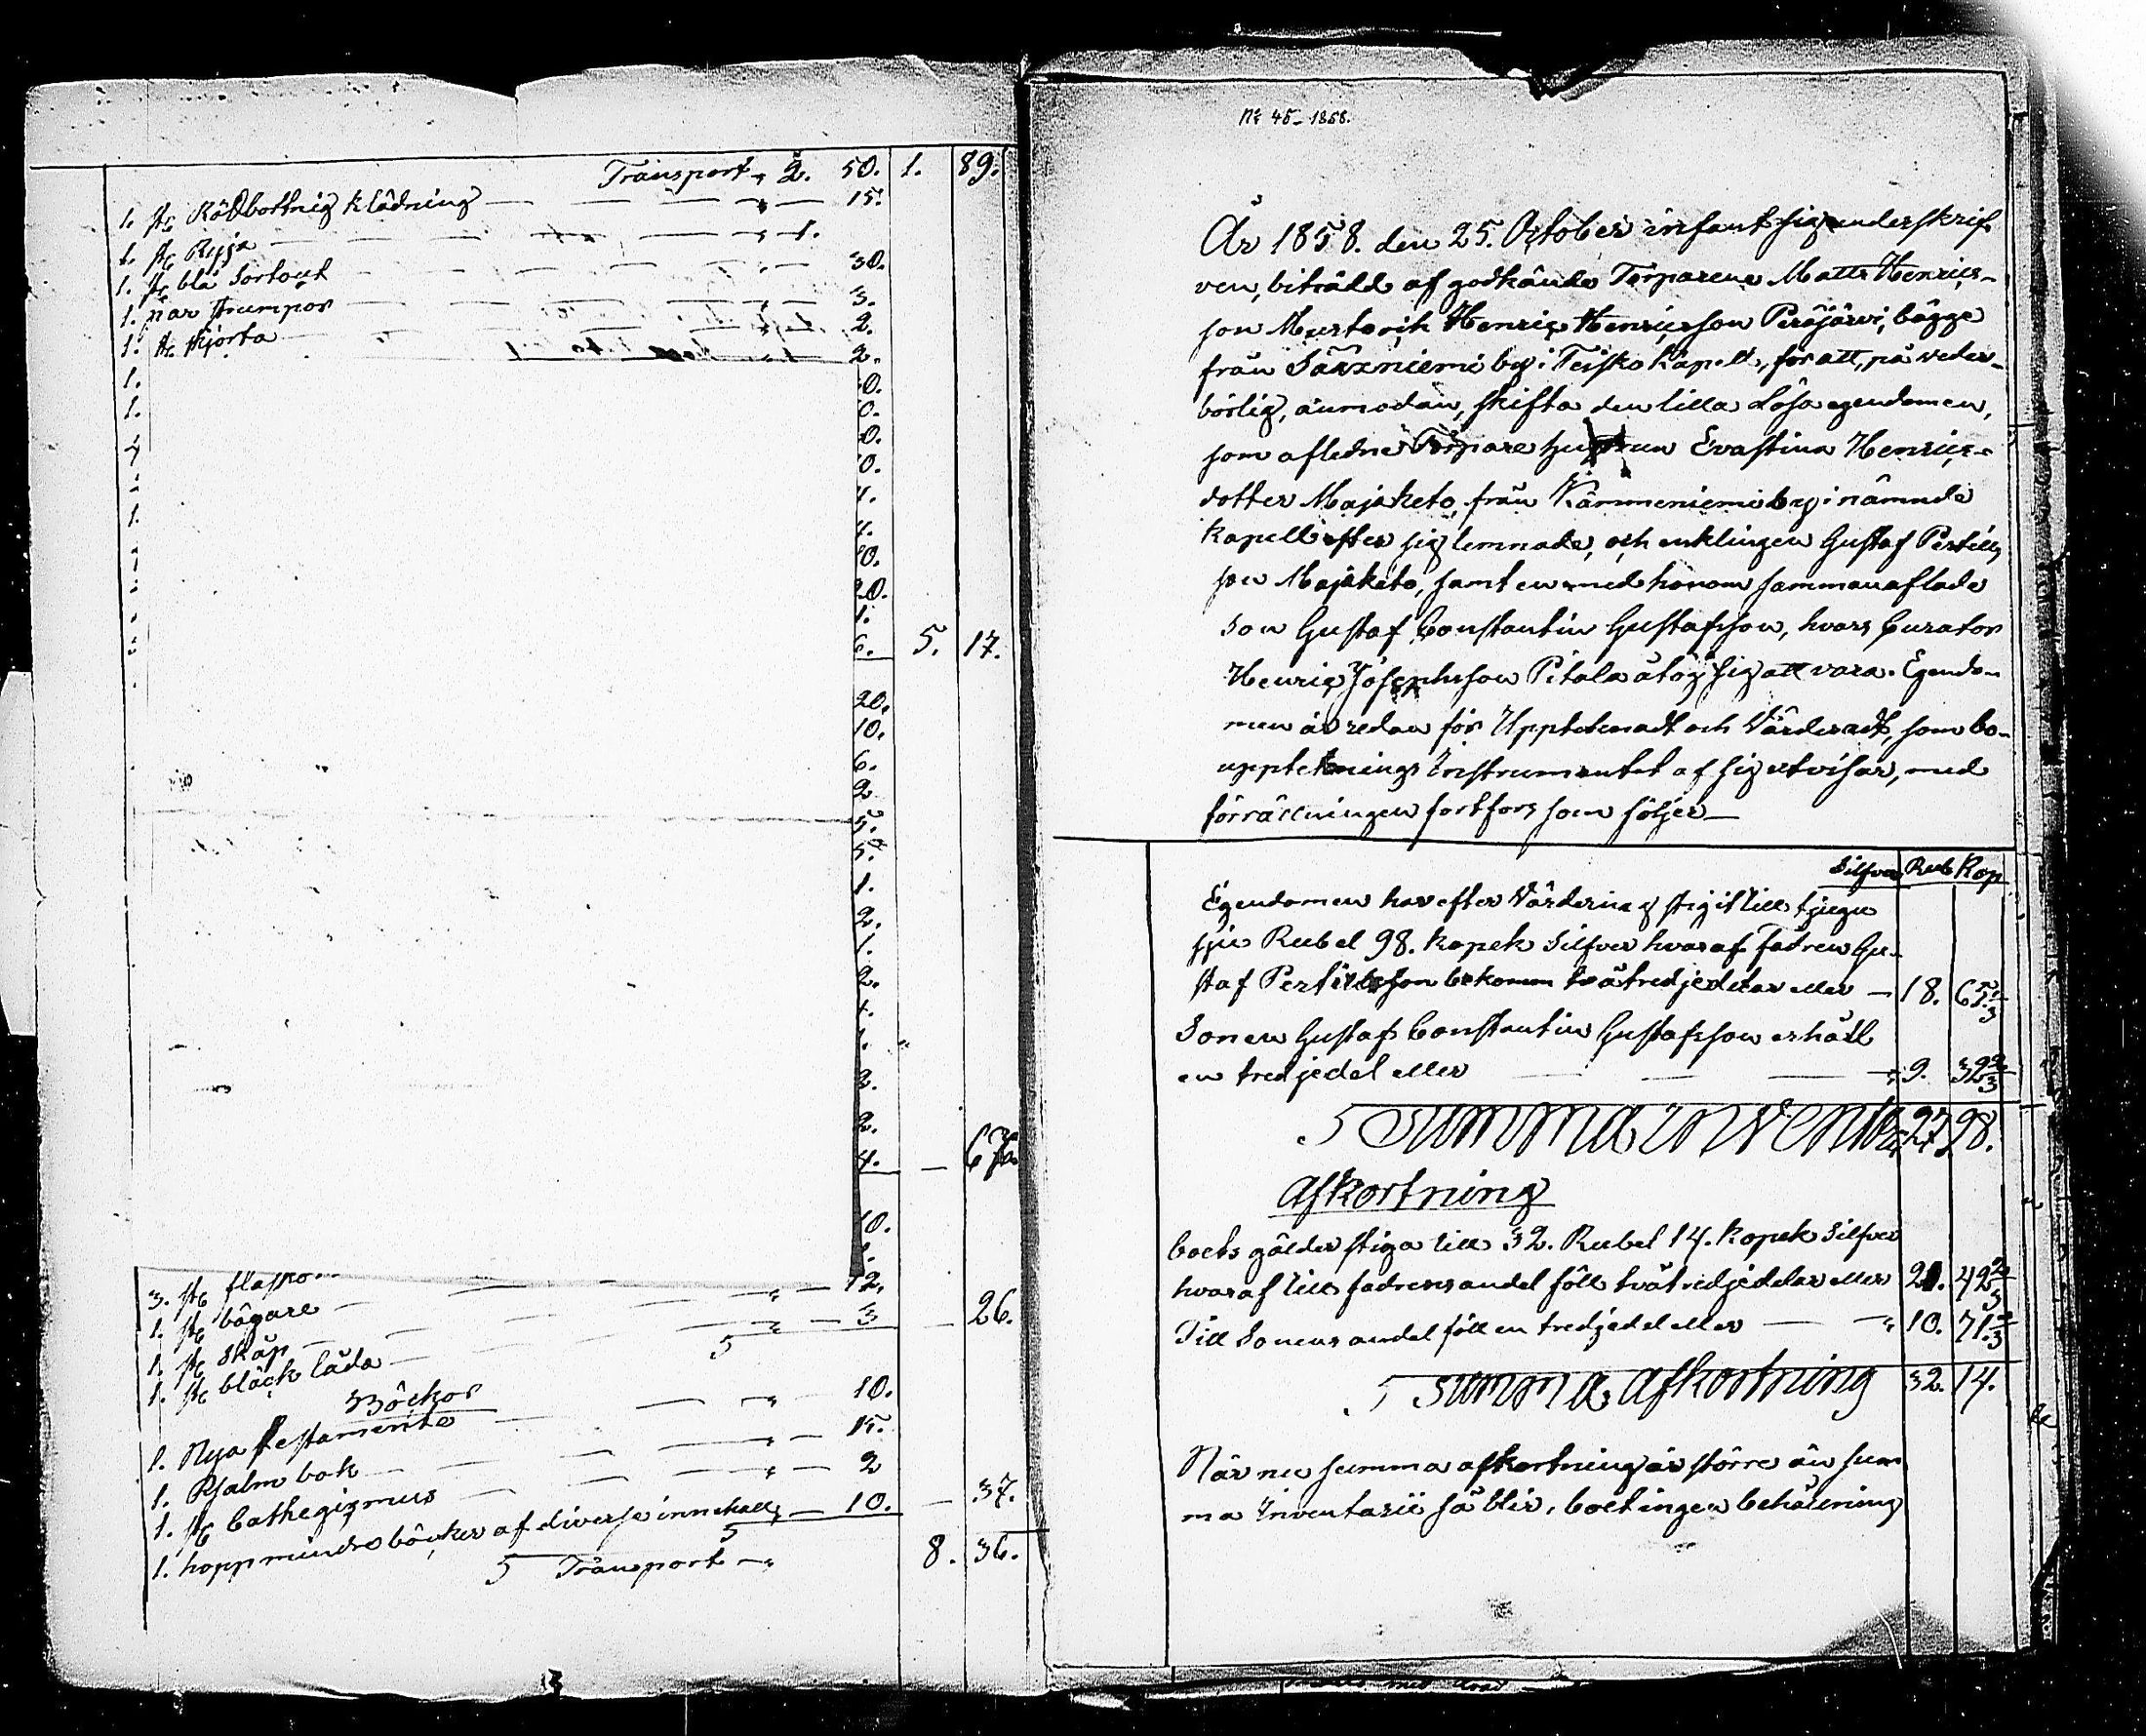 Transport „ 2. 50. 1. 89.
1. st. Rödbottnig klädning — „ — 15.
1. st. Ryja — „ 1.
1. st. blå Sortout — „ 30.
1. par strumpor — „ 3.
1. st. skjorta — 2.
2.
1. 0.
1. 0.
0.
0.
4.
1. 4.
10.
20.
1.
6. 5. 17.
20.
10.
6.
2
5.
5.
1.
2.
1.
2.
1.
1.
2.
2.
4. —
10.
1.
3. st. flaskor — 12.
1. st. bägare — „ — 3 — 26.
1. st. skåp — „
1. st. bläck låda — S
Böcker
1. Nya testamente — „ 10.
1. Psalm bok — „ — 15.
1. st. Cathegismus — „ — 2
1. hopp mindre böcker af diverse innehåll — 10. — 37.
S Transport — „ 8. 36.
No 45 - 1858.
År 1858. den 25. October infant sig underskrif
ven, biträdd af godkände Torparene Matts Henrics-
son Mustavik Henric Henricsson Peräjärvi, bägge
från Särzniemi by i Teisko Kapell, för att, på veder-
börlig, anmodan, skifta den lilla Lösa egendomen,
som afledne Torpare hustrun Evastina Henrics-
dotter Majaketo, från Kämmeniemi by i nämnde
Kapell efter sig lemnade, och enklingen Gustaf Pertills
son Majaketo, samt en med honom sammanaflade
son Gustaf Constantin Gustafsson, hvars Curator
Henric Josephsson Pitala åtog sig att vara. Egendo-
men är redan för Upptecnadt och Värderadt, som bo-
uppteknings Instrumentet af sig utvisar, med
förrättningen fortfors som följer —
Silfver Rub Kop
Egendomen har efter Värdering stigit till tjugu
sju Rubel 98. kopek Silfver hvaraf Fadren Gu-
staf Pertillsson bekomm tvåtredjedelar eller — 18. 65 1/3
Sonen Gustaf Constantin Gustafsson erhåll
en tredjedel eller — „ 9. 32 2/3
S Summa Invent. 27. 98.
Afkortning
boets gälder stiga till 32. Rubel 14. kopek Silfver
hvaraf till fadrens andel föll tvåtredjedelar eller 21. 42 2/3
Till Sonens andel föll en tredjedel eller — „ 10. 71. 1/3
S Summa Afkortning 32. 14.
När nu summa afkortning är större än sum
ma Inventarii så blir, boet ingen behållning